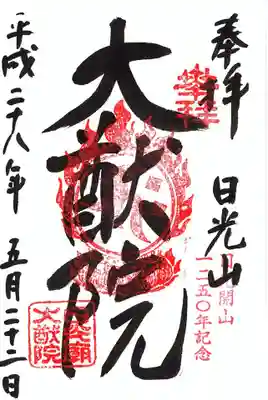 奉拝　日光山
日光開山
一二五〇年記念
大猷院
大猷院
平成二十八年　五月二十二日